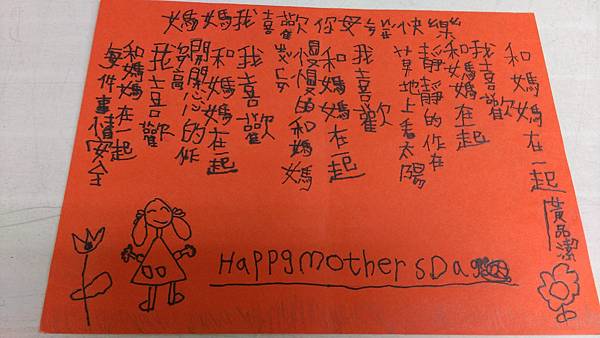 媽媽我喜歡你每 快樂
和媽媽在一起
黃品潔
我喜歡
和媽媽在一起
靜靜的作在
草地上看太陽
我喜歡
和媽媽在一起
慢慢的和媽媽
我喜歡
和媽媽在一起
開開心心的作
我喜歡
和媽媽在一起
每件事情安全
Happy mother s Day